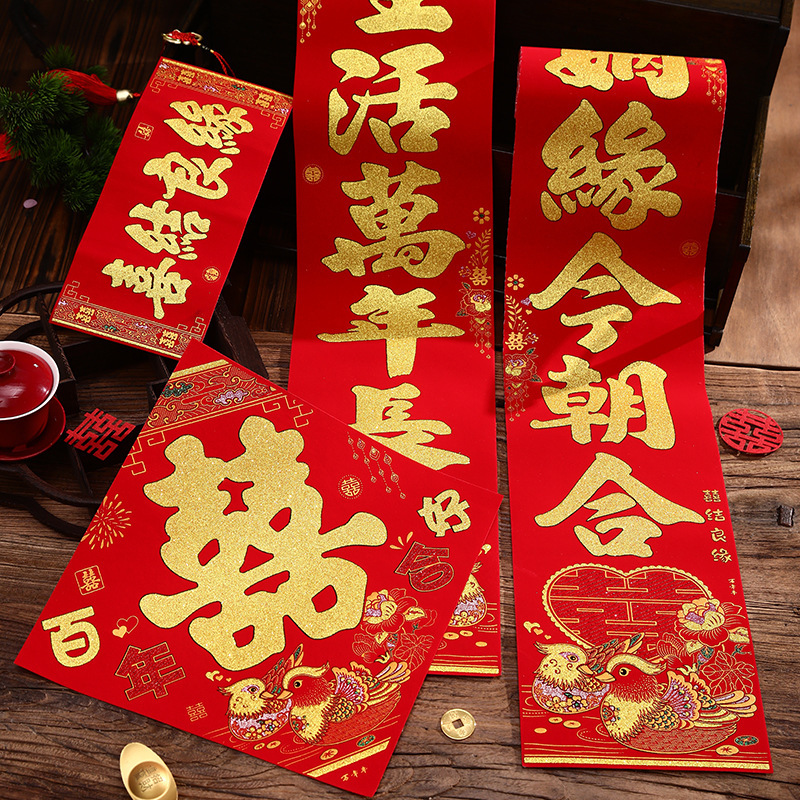 喜結良緣
活萬年長
姻緣今朝合
囍结良缘
囍
百年好合
囍
囍